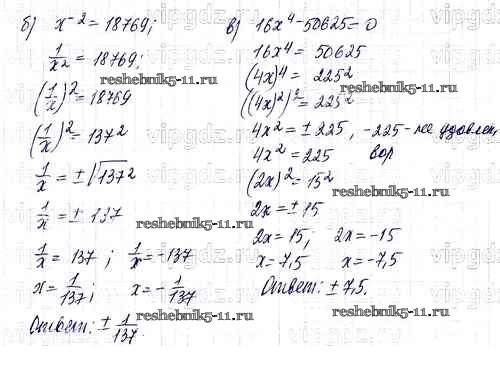 б) x⁻² = 18769;
1/x² = 18769;
(1/x)² = 18769
(1/x)² = 137²
1/x = ±√137²
1/x = ± 137
1/x = 137 ; 1/x = -137
x = 1/137; x = - 1/137
Ответ: ± 1/137.
в) 16x⁴ - 50625 = 0
16x⁴ = 50625
(4x)⁴ = 225²
((4x)²)² = 225²
4x² = ± 225, -225 - не удовлет,
4x² = 225
(2x)² = 15²
2x = ± 15
2x = 15; 2x = -15
x = 7,5 x = -7,5
Ответ: ± 7,5.
reshebnik5-11.ru
reshebnik5-11.ru
reshebnik5-11.ru
reshebnik5-11.ru
vipgdz.ru
vipgdz.ru
vipgdz.ru
vipgdz.ru